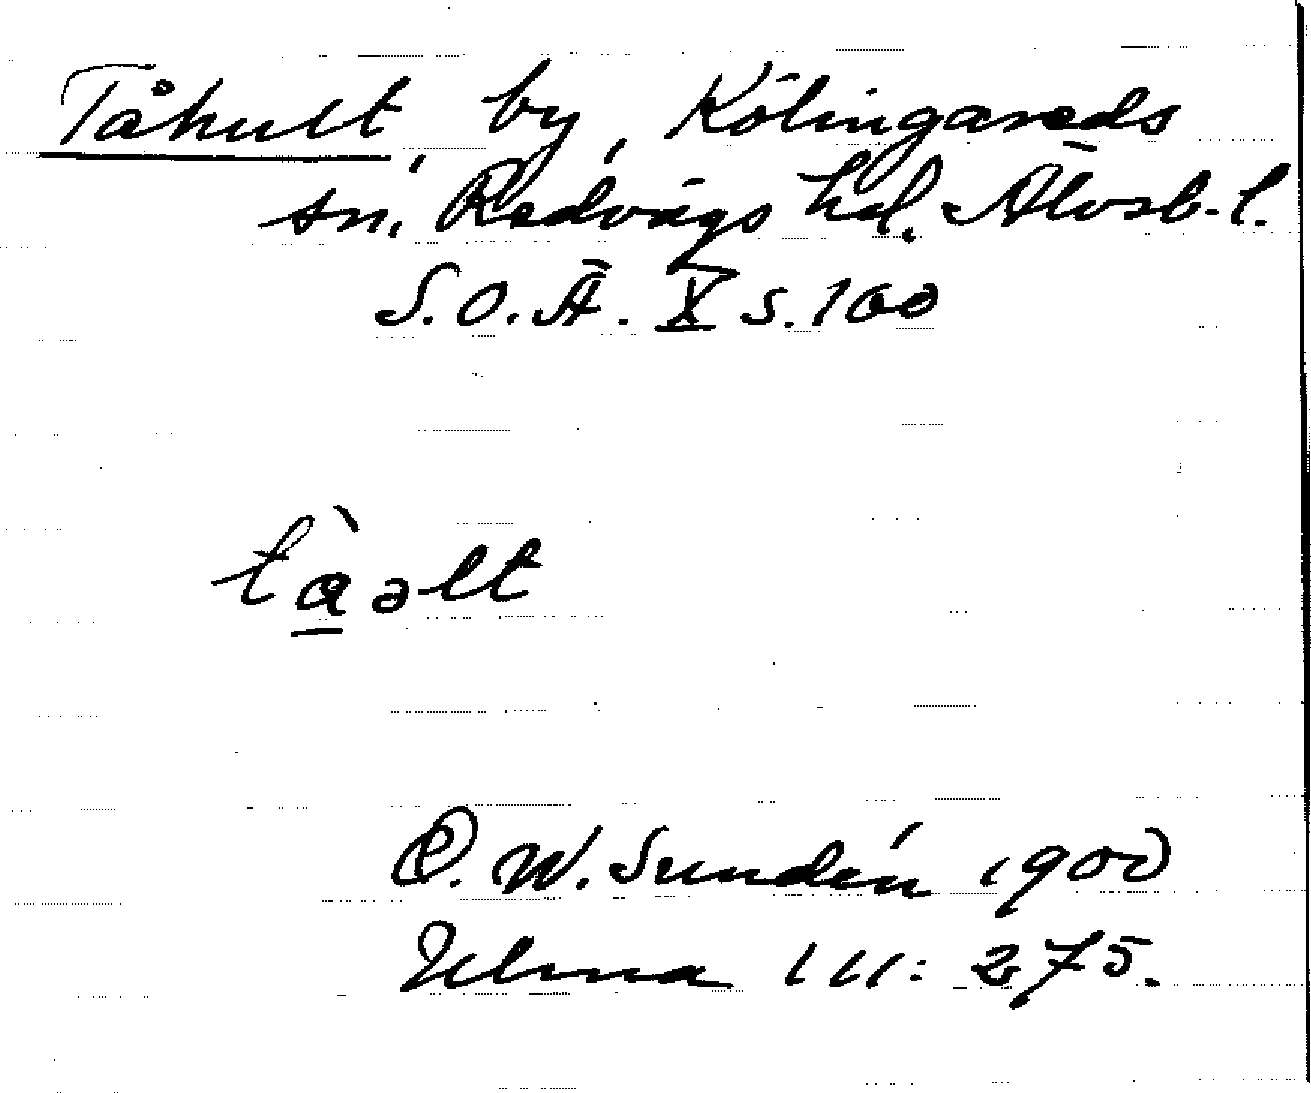 Tåhult, by, Kölingareds
sn. Redvägs hd. Älvsb. l.
S.O.Ä. X s. 100
tàəlt
D. W. Sundén 1900
Ulma 111: 275.